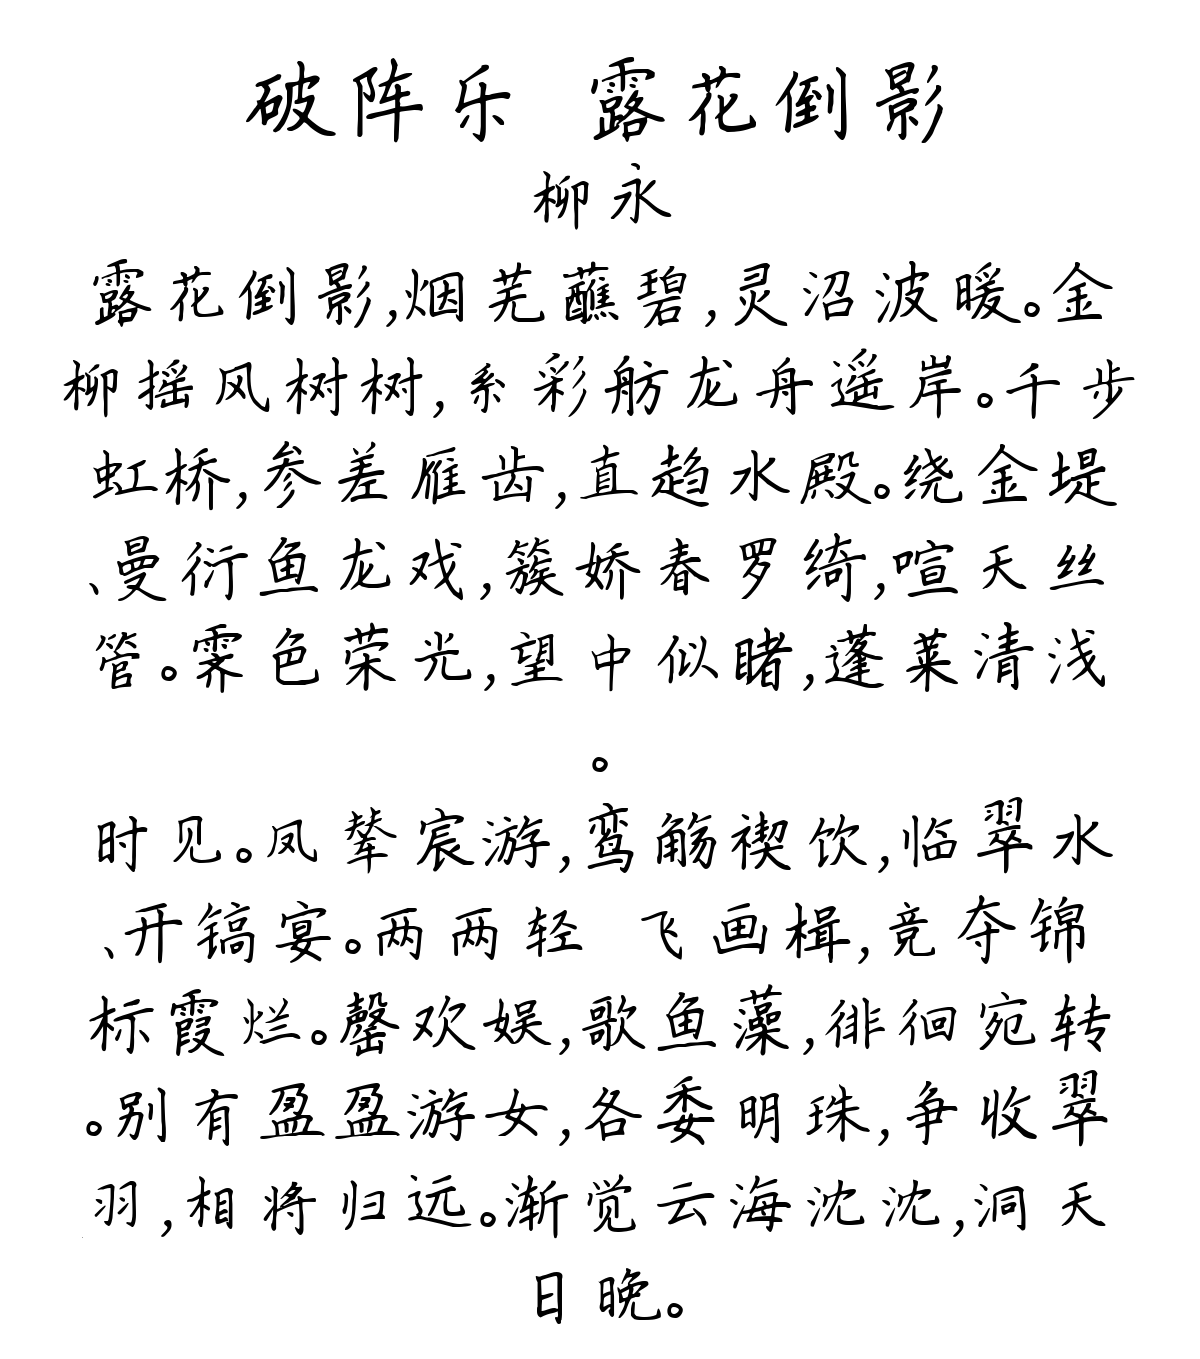 破阵乐 露花倒影
柳永
露花倒影,烟芜蘸碧,灵沼波暖。金
柳摇风树树,系彩舫龙舟遥岸。千步
虹桥,参差雁齿,直趋水殿。绕金堤
、曼衍鱼龙戏,簇娇春罗绮,喧天丝
管。霁色荣光,望中似睹,蓬莱清浅
。
时见。凤辇宸游,鸾觞禊饮,临翠水
、开镐宴。两两轻 飞画楫,竞夺锦
标霞烂。罄欢娱,歌鱼藻,徘徊宛转
。别有盈盈游女,各委明珠,争收翠
羽,相将归远。渐觉云海沈沈,洞天
日晚。